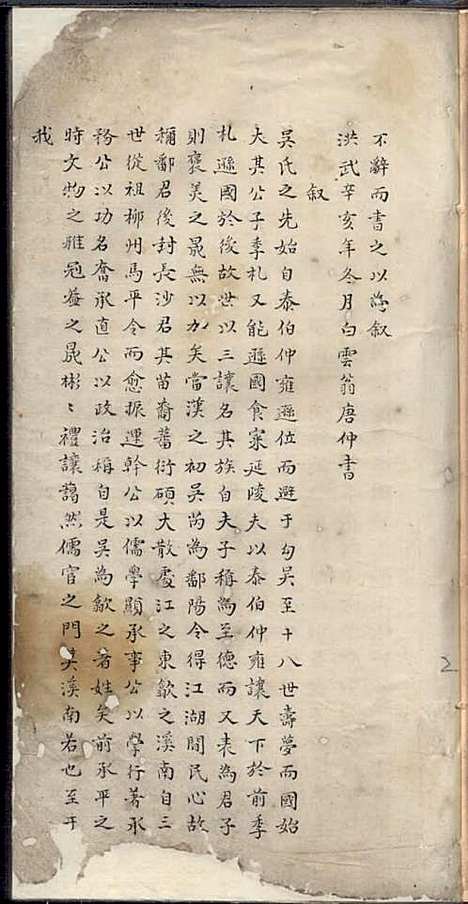 不辭而書之以為叙
洪武辛亥年冬月白雲翁唐仲書
叙
吳氏之先始自泰伯仲雍遜位而避于勾吳至十八世壽夢而國始
大其公子季札又能遜國食寀延陵夫以泰伯仲雍讓天下於前季
札遜國於後故世以三讓名其族自夫子稱為至德而又表為君子
則褒美之最無以加矣當漢之初吳芮為鄱陽令得江湖間民心故
稱鄱君後封長沙君其苗裔蕃衍碩大散處江之東歙之溪南自三
世從祖柳州馬平令而愈振運幹公以儒學顯承事公以學行著承
務公以功名奮承直公以政治稱自是吳為歙之著姓矣前承平之
時文物之雅冠蓋之最彬〻禮讓藹然儒官之門吳溪南若也至于
我
2